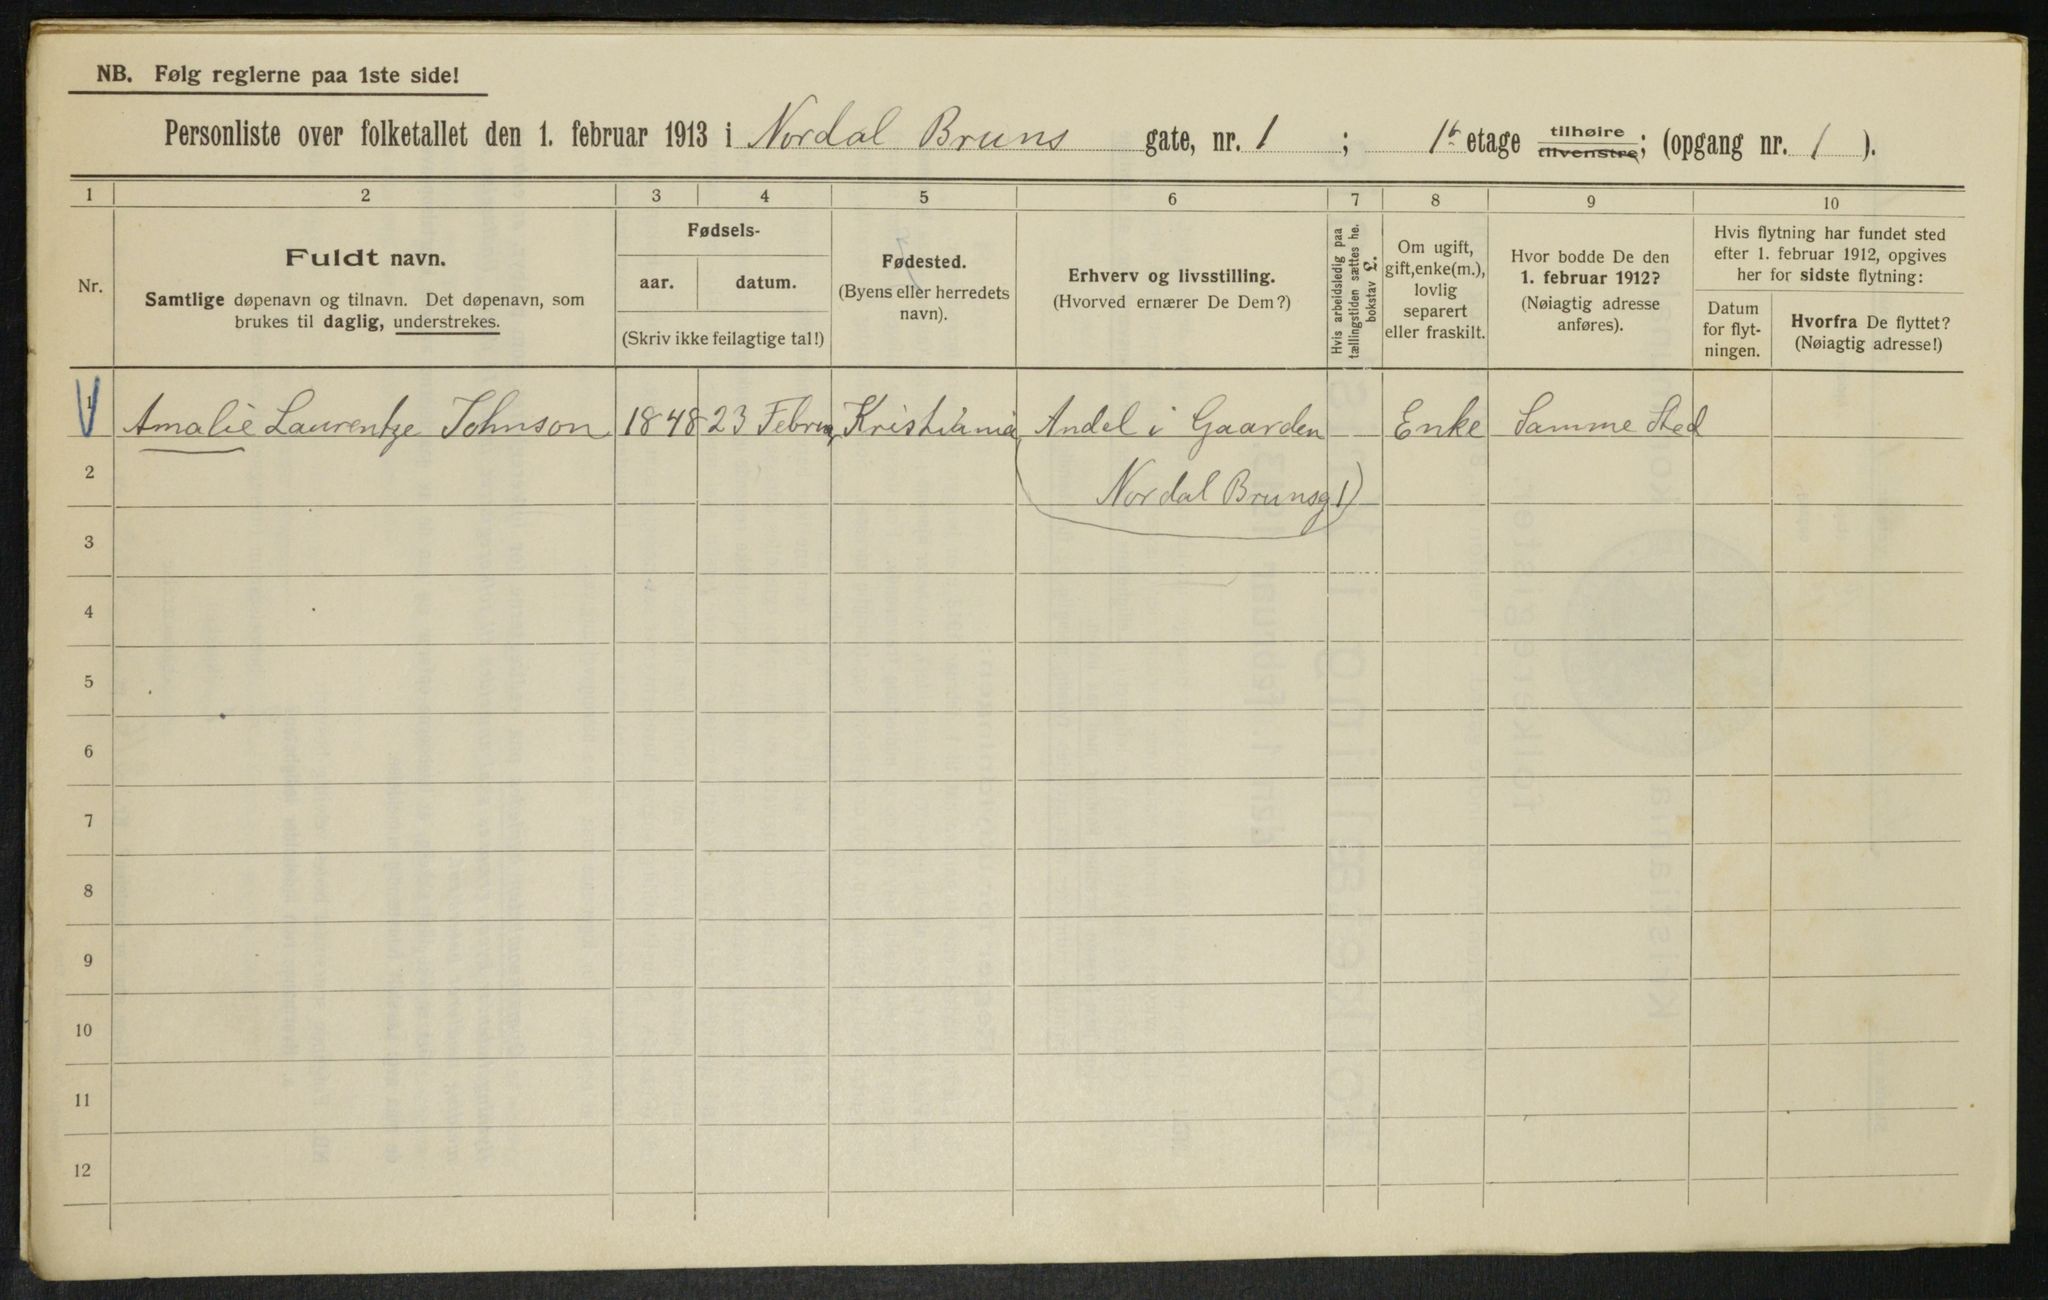 NB. Følg reglerne paa 1ste side!
Personliste over folketallet den 1. februar 1913 i Nordal Bruns gate, nr. 1 ; 1ste etage tilhøire tilvenstre; (opgang nr. 1 ).
1 2 3 4 5 6 7 8 9 10
Nr.
Fuldt navn.
Samtlige døpenavn og tilnavn. Det døpenavn, som
brukes til daglig, understrekes.
Fødsels-
aar. datum.
(Skriv ikke feilagtige tal!)
Fødested.
(Byens eller herredets
navn).
Erhverv og livsstilling.
(Hvorved ernærer De Dem?)
Hvis arbeidsledig paa
tællingstiden sættes he.
bokstav L.
Om ugift,
gift, enke(m.),
lovlig
separert
eller fraskilt.
Hvor bodde De den
1. februar 1912?
(Nøiagtig adresse
anføres).
Hvis flytning har fundet sted
efter 1. februar 1912, opgives
her for sidste flytning:
Datum
for flyt-
ningen.
Hvorfra De flyttet?
(Nøiagtig adresse!)
1 Amalie Laurentze Johnson 1848 23 Februar Kristiania Andel i Gaarden Enke Samme Sted
2 Nordal Brunsg 1)
3
4
5
6
7
8
9
10
11
12